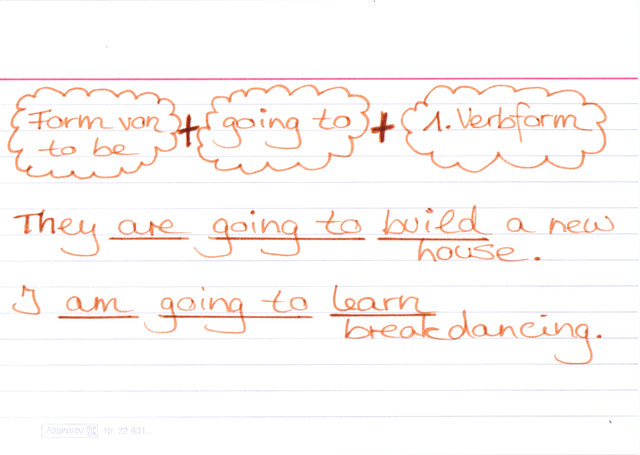 Form von to be + going to + 1. Verbform
They are going to build a new
house.
I am going to learn
breakdancing.
Nr. 22 601